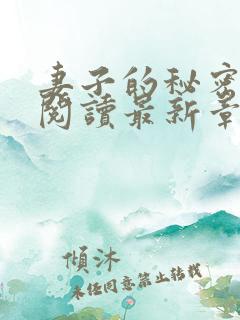 妻子的秘密
閱讀最新章
傾沐
未经同意禁止转载